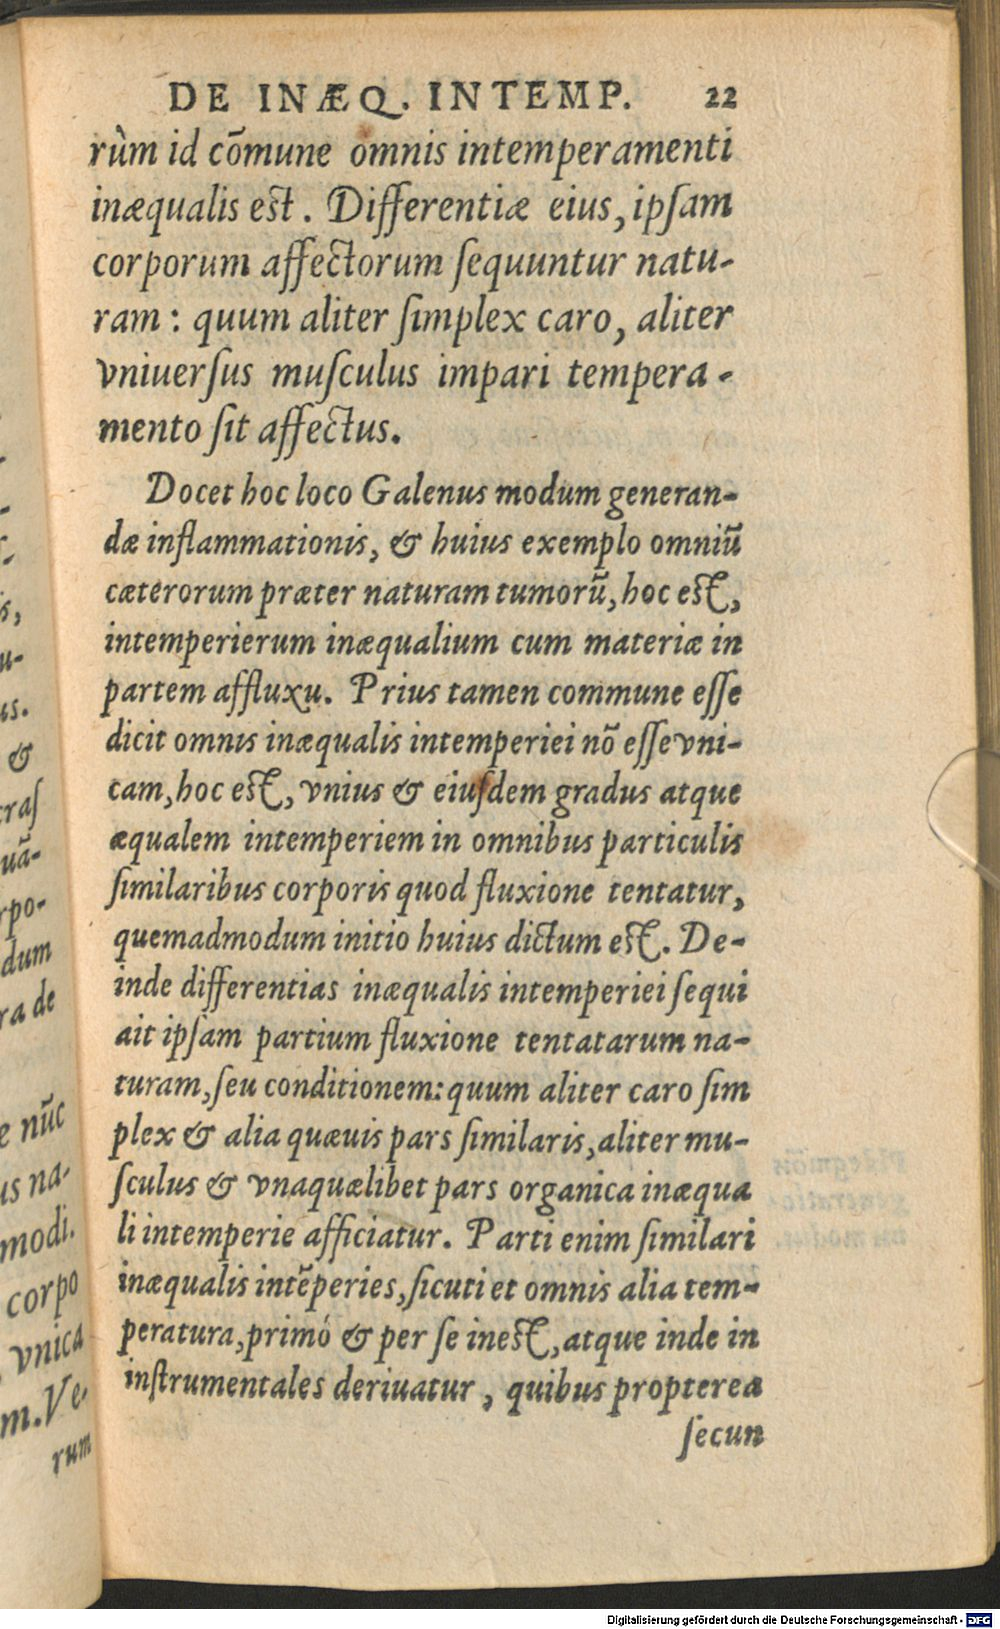 DE INÆQ. INTEMP. 22
rùm id cōmune omnis intemperamenti
inæqualis est. Differentiæ eius, ipſam
corporum affectorum ſequuntur natu-
ram: quum aliter ſimplex caro, aliter
vniuerſus muſculus impari tempera-
mento ſit affectus.
Docet hoc loco Galenus modum generan-
dæ inflammationis, & huius exemplo omniū
cæterorum præter naturam tumorū, hoc est,
intemperierum inæqualium cum materiæ in
partem affluxu. Prius tamen commune eſſe
dicit omnis inæqualis intemperiei nō eſſe vni-
cam, hoc est, vnius & eiuſdem gradus atque
æqualem intemperiem in omnibus particulis
ſimilaribus corporis quod fluxione tentatur,
quemadmodum initio huius dictum est. De-
inde differentias inæqualis intemperiei ſequi
ait ipſam partium fluxione tentatarum na-
turam, ſeu conditionem: quum aliter caro ſim
plex & alia quæuis pars ſimilaris, aliter mu-
ſculus & vnaquælibet pars organica inæqua
li intemperie afficiatur. Parti enim ſimilari
inæqualis intēperies, ſicuti et omnis alia tem-
peratura, primó & per ſe inest, atque inde in
inſtrumentales deriuatur, quibus propterea
ſecun
&
craſ
uā-
rpo-
dum
ra de
e nūc
us na-
modi.
corpo
vnica
m. Ve-
rum
Digitalisierung gefördert durch die Deutsche Forschungsgemeinschaft - DFG